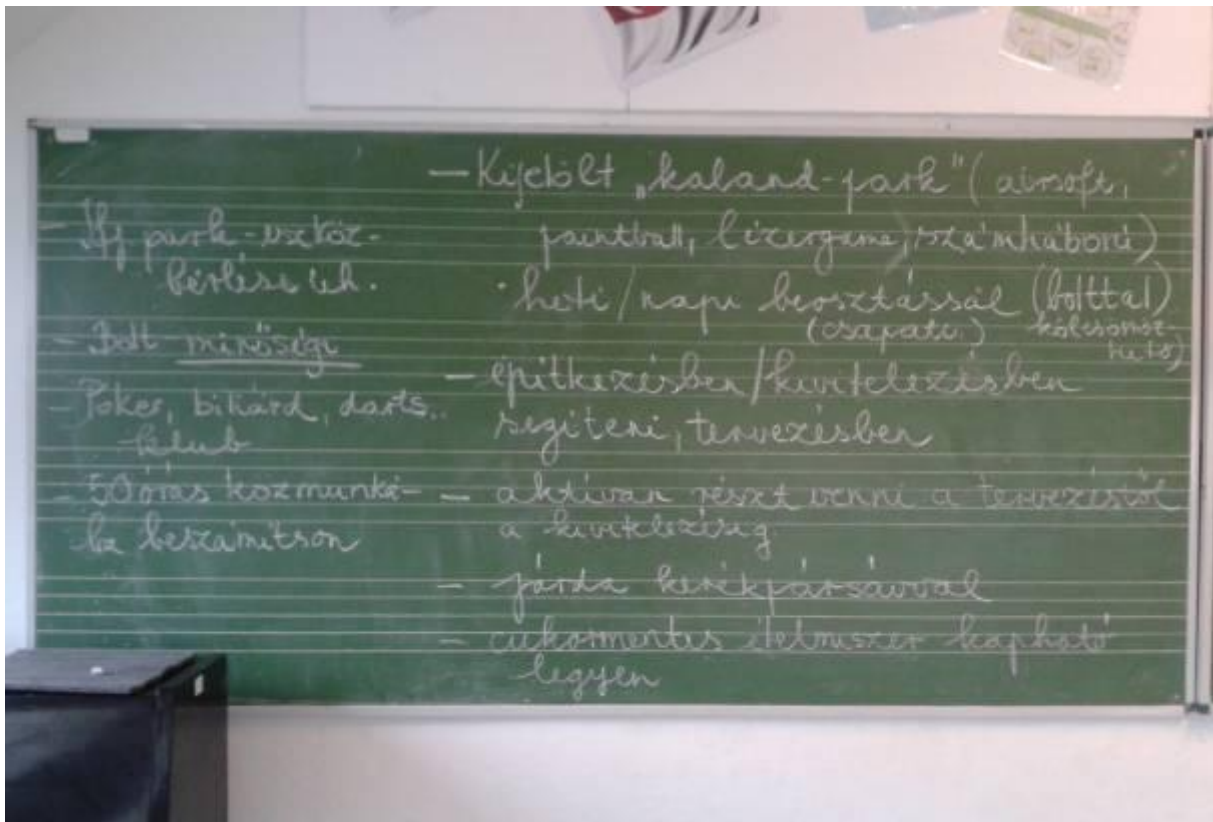 - Ifj park-eszköz-
bérlése ih.
- Bolt minőségi
- Póker, biliárd, darts..
klub
- 50 órás közmunká-
ba beszámítson
- Kijelölt „kaland-park" (airsoft,
paintball, lézergame, számháború)
• heti/napi beosztással (bolttal)
(csapaté.) kölcsönöz-
hető)
- építkezésben/kivitelezésben
segíteni, tervezésben
- aktívan részt venni a tervezéstől
a kivitelezésig
- járda kerékpársávval
- cukormentes élelmiszer kapható
legyen